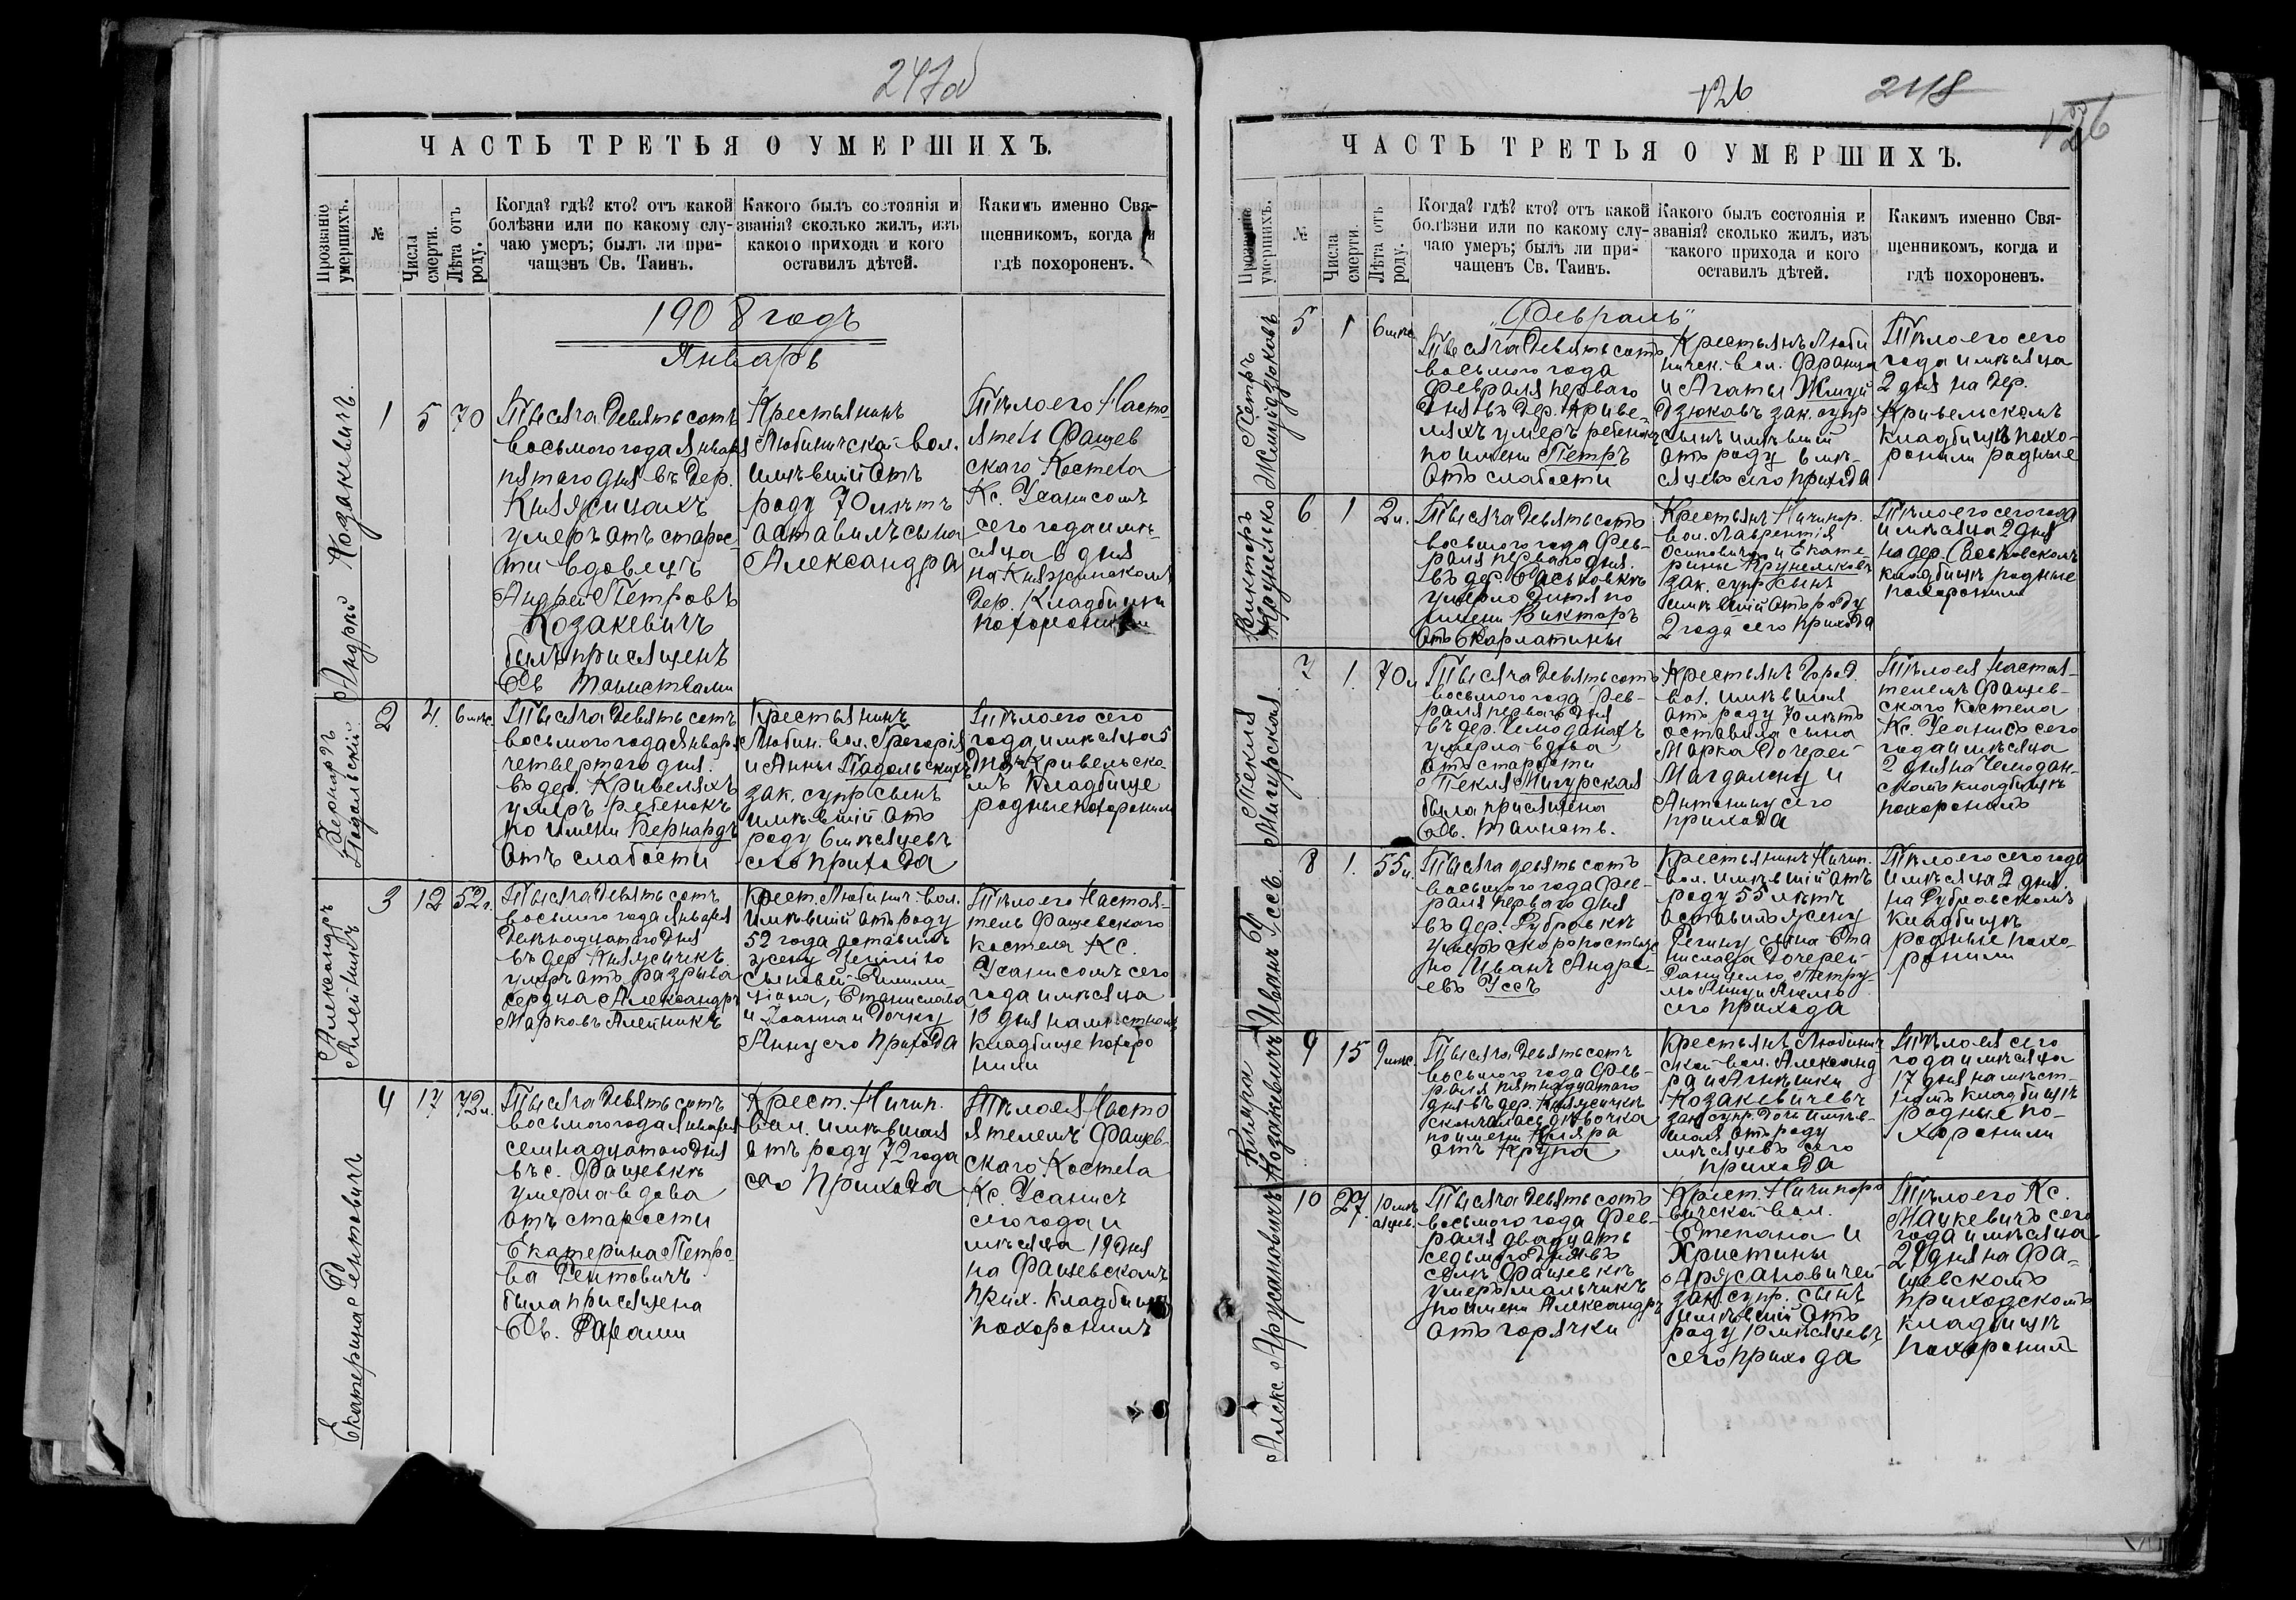 247об
ЧАСТЬ ТРЕТЬЯ О УМЕРШИХЪ.
Прозваніе умершихъ.
№
Числа смерти.
Лѣта отъ роду.
Когда? гдѣ? кто? отъ какой
болѣзни или по какому слу-
чаю умеръ; былъ ли при-
чащенъ Св. Таинъ.
Какого былъ состоянія и
званія? сколько жилъ, изъ
какого прихода и кого
оставилъ дѣтей.
Какимъ именно Свя-
щенникомъ, когда и
гдѣ похороненъ.
1908 годъ
Январь
Андрей Козакевичъ.
1
5
70
Тысяча девятьсотъ
восьмого года Января
пятаго дня въ дер.
Княжицахъ
умеръ отъ старос-
ти вдовецъ
Андрей Петровъ
Козакевичъ
былъ присященъ
Св Таинствами
Крестьянинъ
Любиничской вол.
имѣвшій отъ
роду 70 лѣтъ
оставилъ сына
Александра
Тѣло его Насто-
ятель Фащев
скаго Костела
Кс. Усанисомъ
сего года и мѣ-
сяца 6 дня
на Княжинскомъ
дер. Кладбищи
Бернардъ
Подольскій
2
4.
6 мѣс
Тысяча девятьсотъ
восьмого года Января
четвертаго дня.
въ дер. Кривеляхъ
умеръ ребенокъ
по имени Бернардъ
отъ слабости
Крестьянинъ
Любин. вол. Грегорія
и Анны Падольскихъ
зак. супр сынъ
имѣвшій отъ
роду 6 мѣсяцевъ
сего прихода
Тѣло его сего
года и мѣсяца 5
дня Кривельско-
мъ Кладбище
родные похоронили
Александръ
Алейникъ
3
12
52 г.
Тысяча девятьсотъ
восьмого года Января
двѣнадцатаго дня
въ дер Княжичкѣ.
умеръ отъ разрыва
сердца Александръ
Марковъ Алейникъ
Крест. Любинич. вол.
имѣвшій отъ роду
52 года оставилъ
жену Цецилію
сыновей
Станислава
и Іоанна и дочку
Анну сего прихода
Тѣло его Настоя-
тель Фащевского
костела Кс.
Усанисомъ сего
года и мѣсяца
13 дня на мѣстномъ
кладбище похоро
нили
Екатерина Рентовичъ
4
17
72 л.
Тысяча девятьсотъ
восьмого года Января
семнадцатаго дня
въ с. Фащевкѣ
умерла вдова
отъ старости
Екатерина Петро-
ва Рентовичъ
была присящена
Св.
Крест. Ничип.
вол. имѣвшая
отъ роду 72 года
сего Прихода
Тѣло ея Насто
ятелемъ Фащев-
скаго Костела
Кс. Усанисъ
сего года и
мѣсяца 19 дня
на Фащевскомъ
прих. Кладбище
похоронилъ
126
218
126
ЧАСТЬ ТРЕТЬЯ О УМЕРШИХЪ.
Прозваніе умершихъ.
№
Числа смерти.
Лѣта отъ роду.
Когда? гдѣ? кто? отъ какой
болѣзни или по какому слу-
чаю умеръ; былъ ли при-
чащенъ Св. Таинъ.
Какого былъ состоянія и
званія? сколько жилъ, изъ
какого прихода и кого
оставилъ дѣтей.
Какимъ именно Свя-
щенникомъ, когда и
гдѣ похороненъ.
„Февраль“
Петръ
Жмуйдзюковъ
5
1
6 мѣс
Тысяча девятьсотъ
восьмого года
Февраля перваго
дня въ дер. Криве-
ляхъ умеръ ребенокъ
по имени Петръ
отъ слабости
Крестьянъ Люби
ничск. вол. Франца
и Агаты Жмуй
дзюковъ зак. супр
сынъ имѣвшій
отъ роду 6 мѣ-
сяцевъ сего прихода
Тѣло его сего
года и мѣсяца
2 дня на дер.
Кривельскомъ
кладбищѣ похо-
ронили родные
Викторъ
Крунелько
6
1
2 г.
Тысяча девятьсотъ
восьмого года Фев-
раля перваго дня.
въ дер. Васьковкѣ
умерло дитя по
имени Викторъ
отъ Скарлатины
Крестьянъ Ничипор.
вол. Лаврентія
Осиповича и Екате-
рины Крунельковъ
зак. супр сынъ
имѣвшій отъ роду
2 года сего прихода
Тѣло его сего года
и мѣсяца 2 дня
на дер. Васьковскомъ
кладбищѣ родные
похоронили
Текля
Мигурская
7
1.
70 л
Тысяча девятьсотъ
восьмого года Фев-
раля перваго дня
въ дер. Чемоданахъ
умерла вдова
отъ старости
Текля Мигурская
была присящена
Св. Таинств.
Крестьянъ Город.
вол. имѣвшая
отъ роду 70 лѣтъ
оставила сына
Марка дочерей
Магдалену и
Антонину сего
прихода
Тѣло ея Настоя-
телемъ Фащев-
скаго костела
Кс. Усанисъ сего
года и мѣсяца
2 дня на Чемодан-
скомъ кладбищѣ
похоронилъ
Иванъ Уссъ
8
1.
55 л.
Тысяча девятьсотъ
восьмого года Фев-
раля перваго дня
въ дер. Дубровкѣ
умеръ скоропостиж
но Иванъ Андре-
евъ Уссъ
Крестьянинъ Ничип.
вол. имѣвшій отъ
роду 55 лѣтъ
оставилъ жену
Регину сына Ста
нислава дочерей
Петру-
лю Анну и
сего прихода
Тѣло его сего года
и мѣсяца 2 дня
на Дубровскомъ
кладбищѣ
родные похо-
ронили
Кляра
Козакевичъ
9
15
9 мѣс
Тысяча девятьсотъ
восьмого года Фев-
раля пятнадцатаго
дня въ дер. Княжичкѣ
скончалась дѣвочка
по имени Кляра
отъ Крупа
Крестьянъ Любинич
ской вол. Александ
ра и Агнѣшки
Козакевичевъ
зак супр. дочь имѣв-
шая отъ роду
мѣсяцевъ сего
прихода
Тѣло ея сего
года и мѣсяца
17 дня на мѣст-
номъ кладбищѣ
родные по-
хоронили
Алекс. Арусановичъ
10
27.
10 мѣ
сяцев.
Тысяча девятьсотъ
восьмого года Фев-
раля двадцать
седьмого дня въ
селѣ Фащевкѣ
умеръ мальчикъ
по имени Александръ
отъ горячки
Крест. Ничипоро
вичской вол.
Степана и
Христины
Арусановичей
зак. супр. сынъ
имѣвшій отъ
роду 10 мѣсяцевъ
сего прихода
Тѣло его Кс.
Мацкевичъ сего
года и мѣсяца
29 дня на Фа-
щевскомъ
приходскомъ
кладбищѣ
похоронилъ